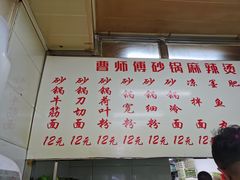 曹师傅砂锅麻辣烫
砂锅牛筋面 12元
砂锅刀切面 12元
砂锅荷叶粉 12元
砂锅宽粉 12元
砂锅细粉 12元
砂锅冷面 12元
凉拌面
墨鱼
肥